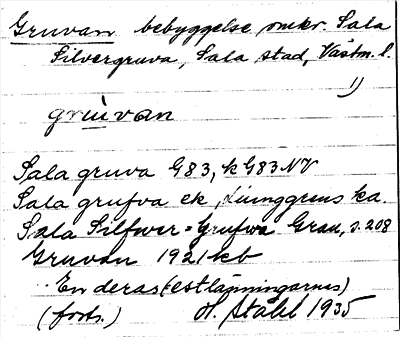 Gruvan bebyggelse omkr. Sala
Silvergruva, Sala stad, Västm. l.
1)
gruvan
Sala gruva G83, k G83 NV
Sala grufva ek, Ljunggrens ka.
Sala Silfwer=Grufwa Grau, s. 208
Gruvan 1921 kb
En deras (estlänningarnes)
(forts.) H. Ståhl 1935